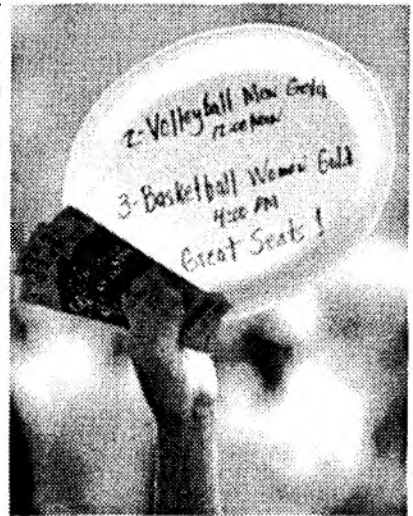 2-Volleyball Men Gold
12:00 Noon
3-Basketball Women Gold
4:00 PM
Great Seats!